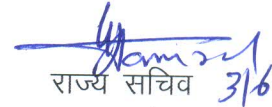 राज्य सचिव 3/6